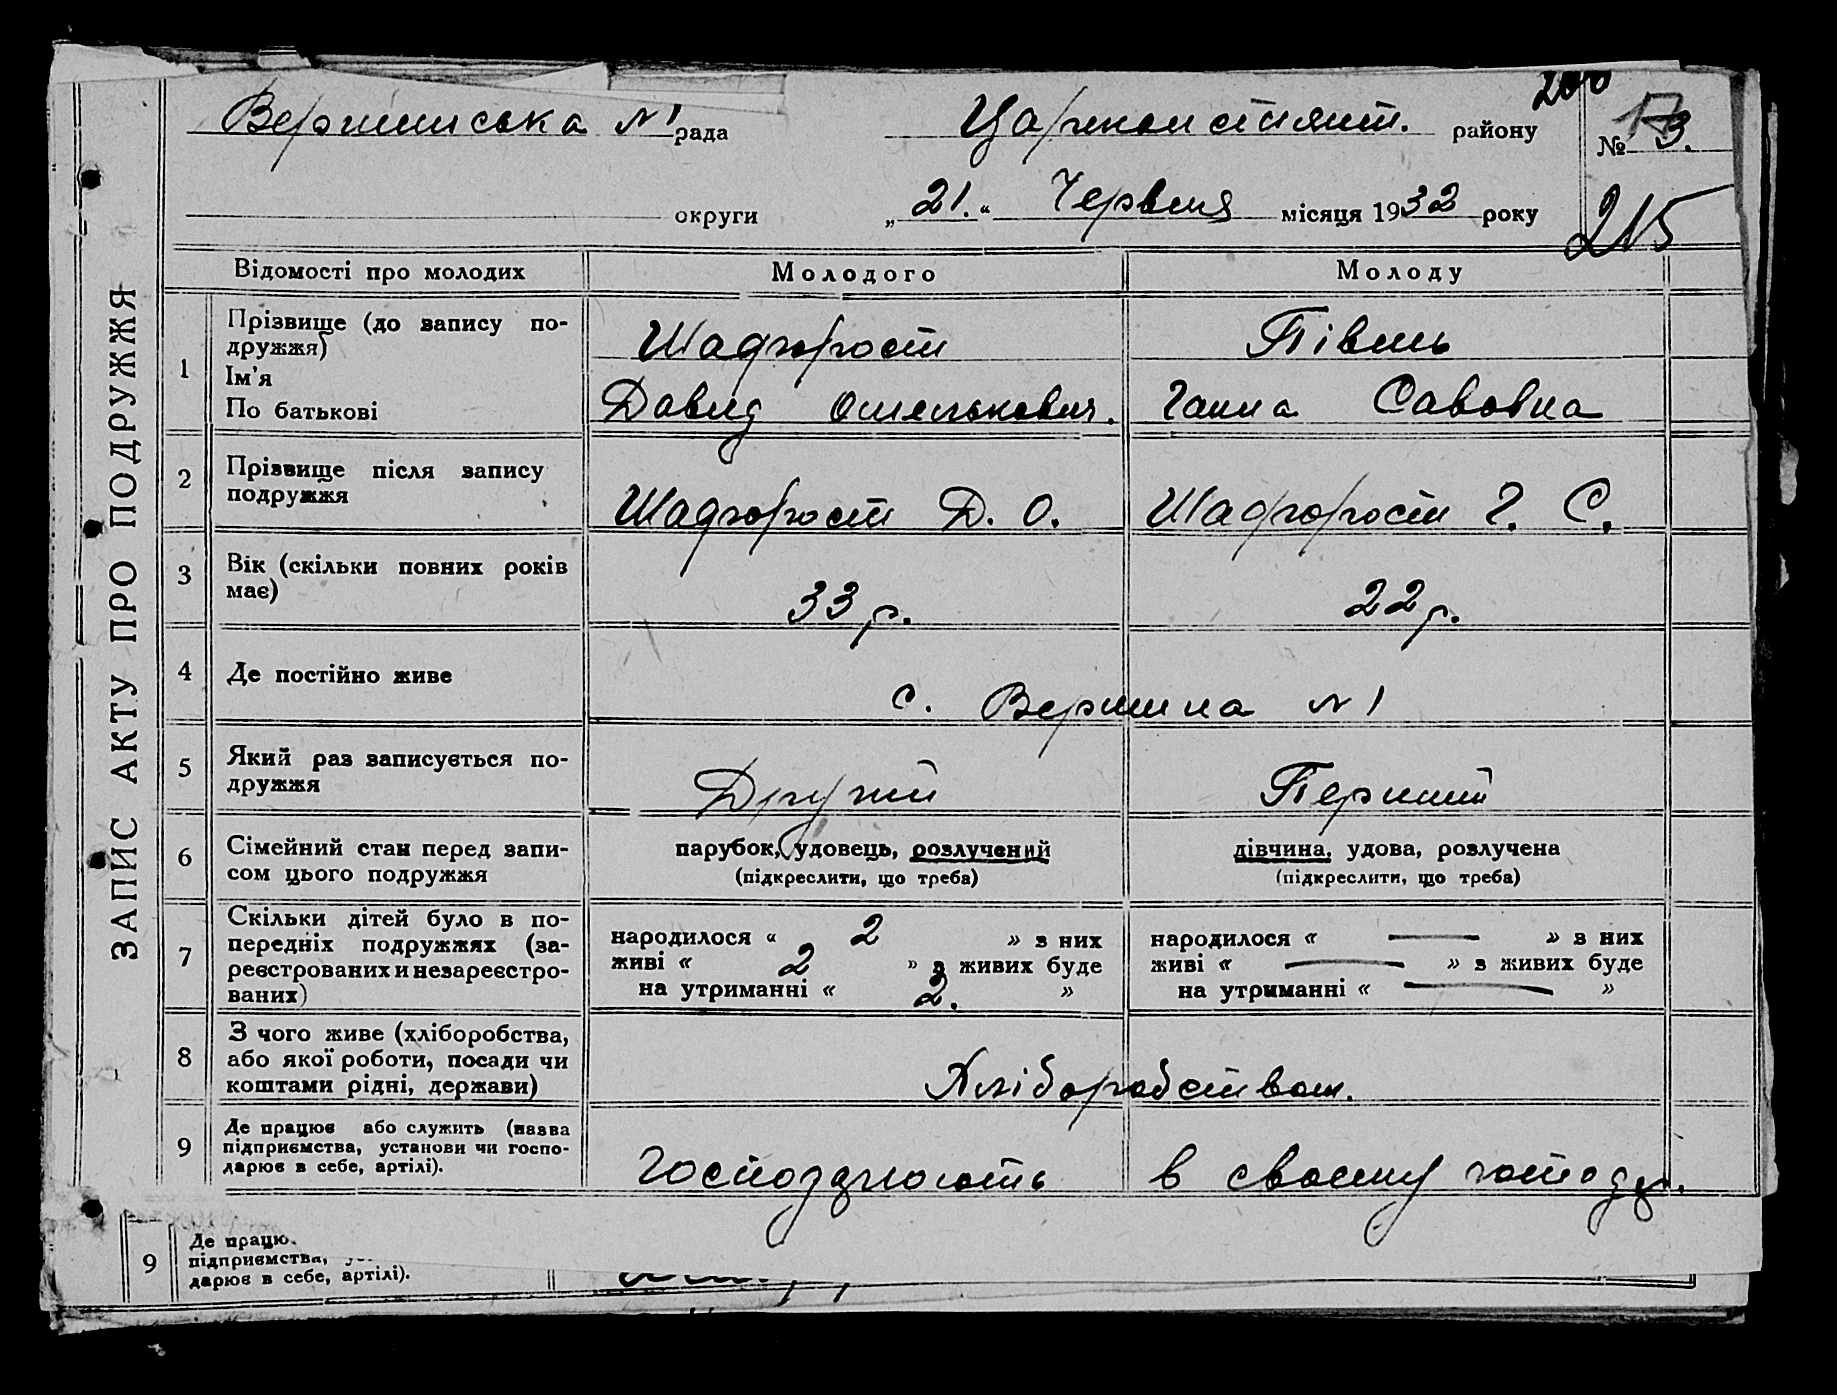 Вершинська №1 рада
Царьконстянт. району
206
№ 3.
округи
„21.“ Червня місяця 1932 року
215
ЗАПИС АКТУ ПРО ПОДРУЖЖЯ
Відомості про молодих
Молодого
Молоду
1
Прізвище (до запису по-
дружжя)
Ім'я
По батькові
Шадгорост
Півень
Давид Омелькович.
Ганна Савовна
2
Прізвище після запису
подружжя
Шадгорост Д. О.
Шадгорост Г. С.
3
Вік (скільки повних років
має)
33 р.
22 р.
4
Де постійно живе
с. Вершина №1
5
Який раз записується по-
дружжя
Другий
Перший
6
Сімейний стан перед запи-
сом цього подружжя
парубок, удовець, розлучений
(підкреслити, що треба)
дівчина, удова, розлучена
(підкреслити, що треба)
7
Скільки дітей було в по-
передніх подружжях (за-
реєстрованих и незареєстро-
ваних)
народилося « 2 » з них
живі « 2 » з живих буде
на утриманні « 2. »
народилося « — » з них
живі « — » з живих буде
на утриманні « — »
8
З чого живе (хліборобства,
або якої роботи, посади чи
коштами рідні, держави)
Хліборобством.
9
Де працює або служить (назва
підприємства, установи чи госпо-
дарює в себе, артілі).
Господарюють в своєму господ.
9
Де працює
підприємства,
дарює в себе, артілі).